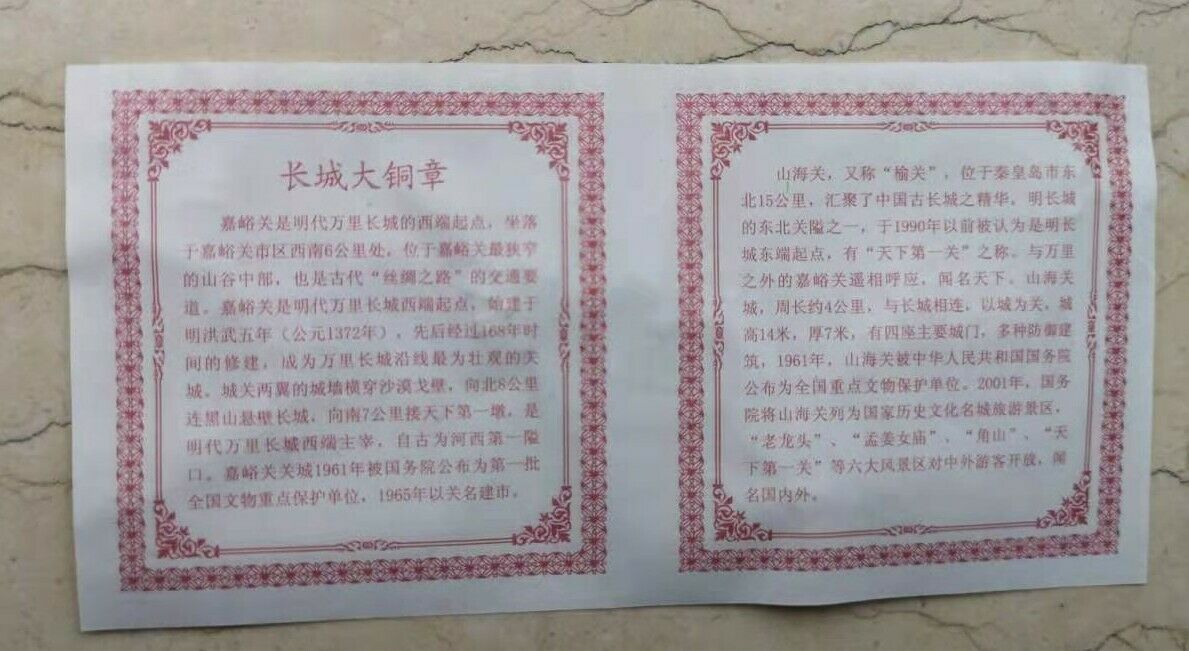 长城大铜章
嘉峪关是明代万里长城的西端起点，坐落
于嘉峪关市区西南6公里处，位于嘉峪关最狭窄
的山谷中部，也是古代“丝绸之路”的交通要
道。嘉峪关是明代万里长城西端起点，始建于
明洪武五年（公元1372年），先后经过168年时
间的修建，成为万里长城沿线最为壮观的关
城。城关两翼的城墙横穿沙漠戈壁，向北8公里
连黑山悬壁长城，向南7公里接天下第一墩，是
明代万里长城西端主宰，自古为河西第一隘
口。嘉峪关关城1961年被国务院公布为第一批
全国文物重点保护单位，1965年以关名建市。
山海关，又称“榆关”，位于秦皇岛市东
北15公里，汇聚了中国古长城之精华。明长城
的东北关隘之一，于1990年以前被认为是明长
城东端起点，有“天下第一关”之称。与万里
之外的嘉峪关遥相呼应，闻名天下。山海关
城，周长约4公里，与长城相连，以城为关，城
高14米，厚7米，有四座主要城门，多种防御建
筑，1961年，山海关被中华人民共和国国务院
公布为全国重点文物保护单位。2001年，国务
院将山海关列为国家历史文化名城旅游景区，
“老龙头”、“孟姜女庙”、“角山”、“天
下第一关”等六大风景区对中外游客开放，闻
名国内外。